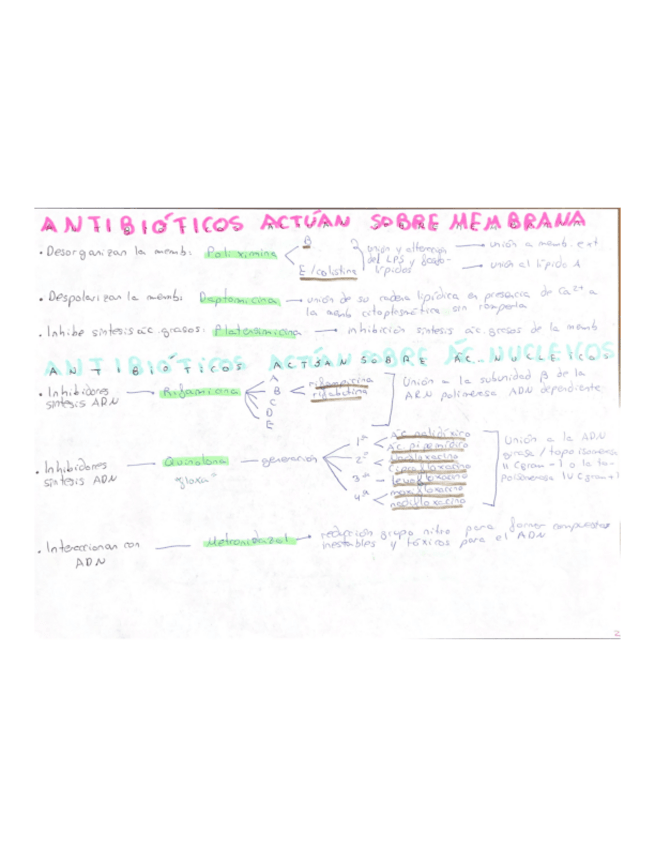 ANTIBIÓTICOS ACTÚAN SOBRE MEMBRANA
· Desorganizan la memb: Polimixina
B
E / colistina
unión y alteración del LPS y fosfo-lípidos
unión a memb. ext
unión al lípido A
· Despolarizan la memb: Daptomicina → unión de su cadena lipídica en presencia de Ca²⁺ a
la memb citoplasmática sin romperla
· Inhibe síntesis ác. grasos: Platensimicina → inhibición síntesis ác. grasos de la memb
ANTIBIÓTICOS ACTÚAN SOBRE ÁC. NUCLEICOS
· Inhibidores síntesis ADN
Rifamicina
A
B
C
D
E
rifampicina
rifabutina
Unión a la subunidad β de la
ARN polimerasa ADN dependiente
· Inhibidores síntesis ADN
Quinolona
"floxa"
generación
1ª
ác nalidíxico
ác pipemídico
2ª
norfloxacino
ciprofloxacino
3ª
levofloxacino
4ª
moxifloxacino
nadifloxacino
Unión a la ADN
girasa / topoisomerasa
II Cgram - ) o la to-
poisomerasa IV Cgram + )
· Interaccionan con ADN
Metronidazol
reducción grupo nitro para formar compuestos
inestables y tóxicos para el ADN
2